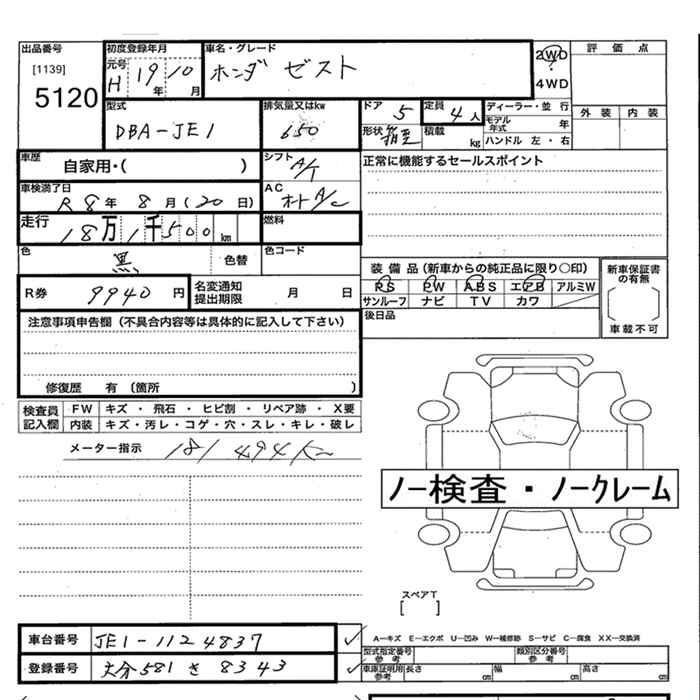 出品番号
[1139]
5120
初度登録年月
元号 H 19年 10月
車名・グレード
ホンダ ゼスト
2WD
4WD
評価点
外装 内装
型式
DBA-JE1
排気量又はkw
650
ドア 5
定員 4人
形状 箱型
積載 kg
ディーラー・並 行
モデル年式 年
ハンドル 左・右
車歴
自家用・( )
シフト
A/T
正常に機能するセールスポイント
車検満了日
R 8年 8月(20日)
AC
オートA/C
走行
18万1千500km
燃料
色
黒
色替
色コード
装備品(新車からの純正品に限り○印)
PS PW ABS エアB アルミW
サンルーフ ナビ TV カワ
新車保証書の有無
車載不可
R券 9940円
名変通知提出期限 月 日
後日品
注意事項申告欄(不具合内容等は具体的に記入して下さい)
修復歴 有(箇所 )
検査員記入欄
FW キズ・飛石・ヒビ割・リペア跡・X要
内装 キズ・汚レ・コゲ・穴・スレ・キレ・破レ
メーター指示 181494Km
ノー検査・ノークレーム
スペアT
[ ]
車台番号 JE1-1124837
登録番号 大分581 さ 8343
A-キズ E-エクボ U-凹み W-補修跡 S-サビ C-腐食 XX-交換済
型式指定番号 参考
類別区分番号 参考
車庫証明用 参考
長さ cm 幅 cm 高さ cm